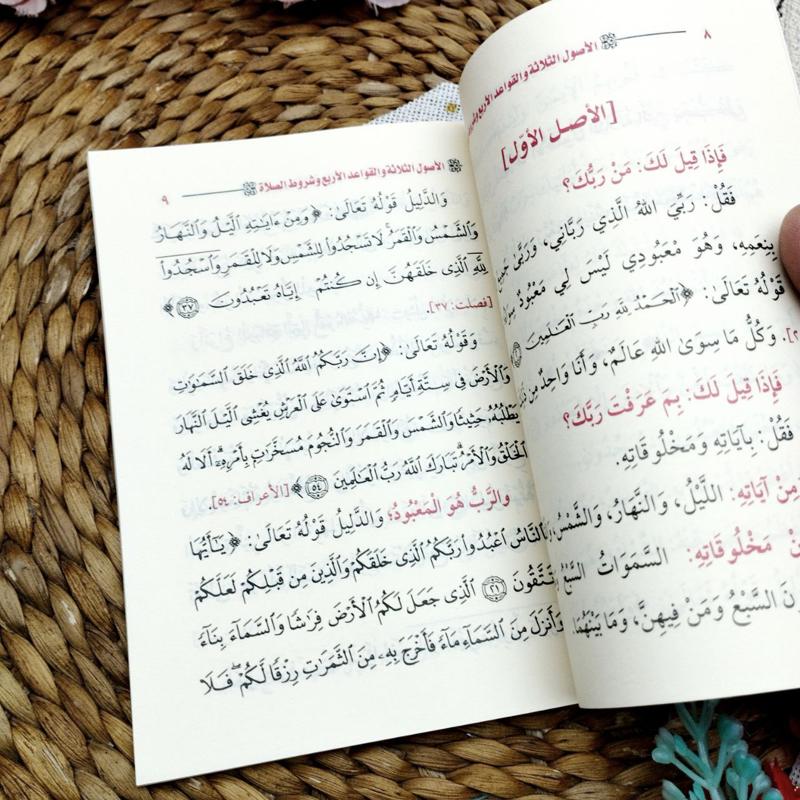 ٨ الأصول الثلاثة والقواعد الأربع وشروط
[الأصل الأوّل]
فَإِذَا قِيلَ لَكَ: مَنْ رَبُّكَ؟
فَقُلْ: رَبِّيَ اللهُ الَّذِي رَبَّانِي، وَرَبَّى
بِنِعَمِهِ، وَهُوَ مَعْبُودِي لَيْسَ لِي مَعْبُودٌ
قَوْلُهُ تَعَالَى: ﴿ٱلْحَمْدُ لِلَّهِ رَبِّ ٱلْعَٰلَمِينَ
وَكُلُّ مَا سِوَى اللهِ عَالَمٌ، وَأَنَا وَاحِدٌ مِنْ
فَإِذَا قِيلَ لَكَ: بِمَ عَرَفْتَ رَبَّكَ؟
فَقُلْ: بِآيَاتِهِ وَمَخْلُوقَاتِهِ.
مِنْ آيَاتِهِ: اللَّيْلُ، وَالنَّهَارُ، وَالشَّمْسُ،
مَخْلُوقَاتِهِ: السَّمَوَاتُ السَّبْعُ
السَّبْعُ وَمَنْ فِيهِنَّ، وَمَا بَيْنَهُمَا،
الأصول الثلاثة والقواعد الأربع وشروط الصلاة ٩
وَالدَّلِيلُ قَوْلُهُ تَعَالَى: ﴿وَمِنْ ءَايَٰتِهِ ٱلَّيْلُ وَٱلنَّهَارُ
وَٱلشَّمْسُ وَٱلْقَمَرُ لَا تَسْجُدُوا۟ لِلشَّمْسِ وَلَا لِلْقَمَرِ وَٱسْجُدُوا۟
لِلَّهِ ٱلَّذِى خَلَقَهُنَّ إِن كُنتُمْ إِيَّاهُ تَعْبُدُونَ ٣٧﴾
[فصلت: ٣٧].
وَقَوْلُهُ تَعَالَى: ﴿إِنَّ رَبَّكُمُ ٱللَّهُ ٱلَّذِى خَلَقَ ٱلسَّمَٰوَٰتِ
وَٱلْأَرْضَ فِى سِتَّةِ أَيَّامٍ ثُمَّ ٱسْتَوَىٰ عَلَى ٱلْعَرْشِ يُغْشِى ٱلَّيْلَ ٱلنَّهَارَ
يَطْلُبُهُۥ حَثِيثًا وَٱلشَّمْسَ وَٱلْقَمَرَ وَٱلنُّجُومَ مُسَخَّرَٰتٍۭ بِأَمْرِهِۦٓ أَلَا لَهُ
ٱلْخَلْقُ وَٱلْأَمْرُ تَبَارَكَ ٱللَّهُ رَبُّ ٱلْعَٰلَمِينَ ٥٤﴾ [الأعراف: ٥٤].
والرَّبُّ هُوَ الْمَعْبُودُ؛ وَالدَّلِيلُ قَوْلُهُ تَعَالَى: ﴿يَٰٓأَيُّهَا
ٱلنَّاسُ ٱعْبُدُوا۟ رَبَّكُمُ ٱلَّذِى خَلَقَكُمْ وَٱلَّذِينَ مِن قَبْلِكُمْ لَعَلَّكُمْ
تَتَّقُونَ ٢١ ٱلَّذِى جَعَلَ لَكُمُ ٱلْأَرْضَ فِرَٰشًا وَٱلسَّمَآءَ بِنَآءً
وَأَنزَلَ مِنَ ٱلسَّمَآءِ مَآءً فَأَخْرَجَ بِهِۦ مِنَ ٱلثَّمَرَٰتِ رِزْقًا لَّكُمْ فَلَا